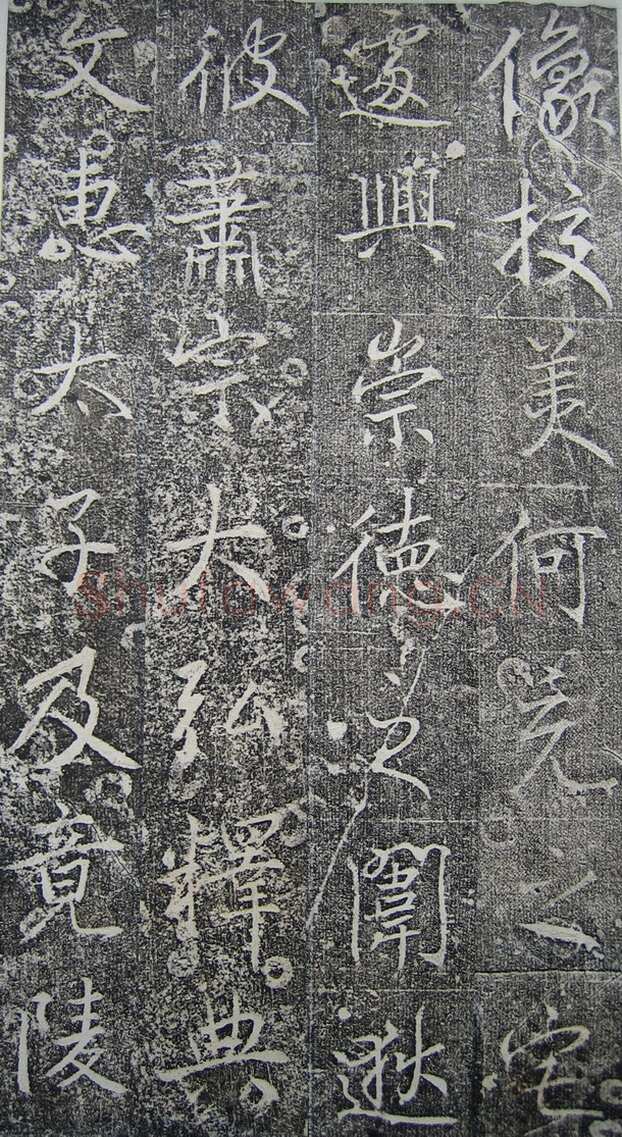 像挍美何充之宅
遽興崇德之闈逖
彼蕭宗大弘釋典
文惠太子及竟陵
Shufawang.CN